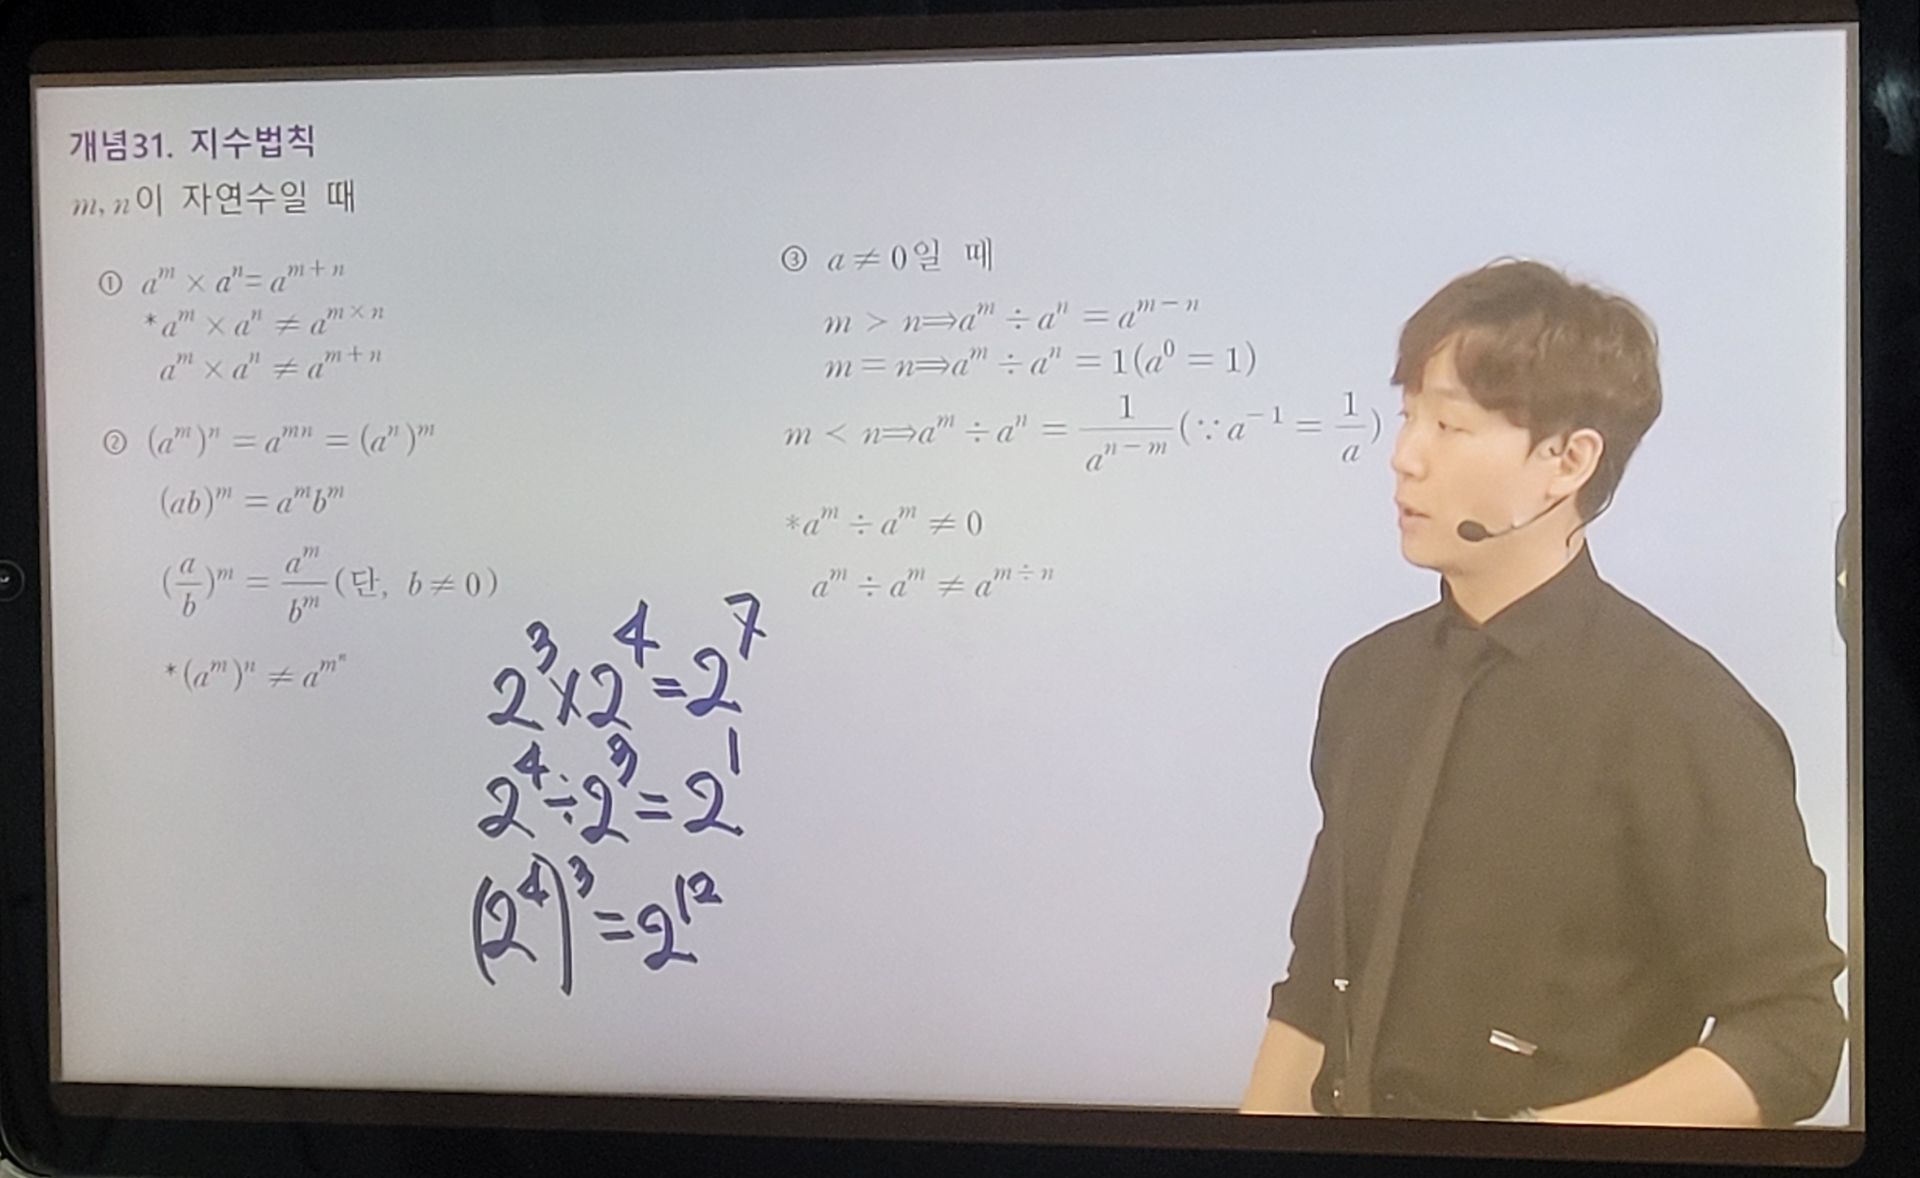 개념31. 지수법칙
m, n이 자연수일 때
① aᵐ × aⁿ= aᵐ⁺ⁿ
*aᵐ × aⁿ ≠ a^{m×n}
aᵐ × aⁿ ≠ aᵐ⁺ⁿ
② (aᵐ)ⁿ = aᵐⁿ = (aⁿ)ᵐ
(ab)ᵐ = aᵐbᵐ
(a/b)ᵐ = aᵐ/bᵐ (단, b ≠ 0)
*(aᵐ)ⁿ ≠ a^{m^n}
③ a ≠ 0일 때
m > n⟹aᵐ ÷ aⁿ = aᵐ⁻ⁿ
m = n⟹aᵐ ÷ aⁿ = 1(a⁰ = 1)
m < n⟹aᵐ ÷ aⁿ = 1/aⁿ⁻ᵐ (∵a⁻¹ = 1/a)
*aᵐ ÷ aᵐ ≠ 0
aᵐ ÷ aᵐ ≠ a^{m÷n}
2³×2⁴=2⁷
2⁴÷2³=2¹
(2⁴)³=2¹²